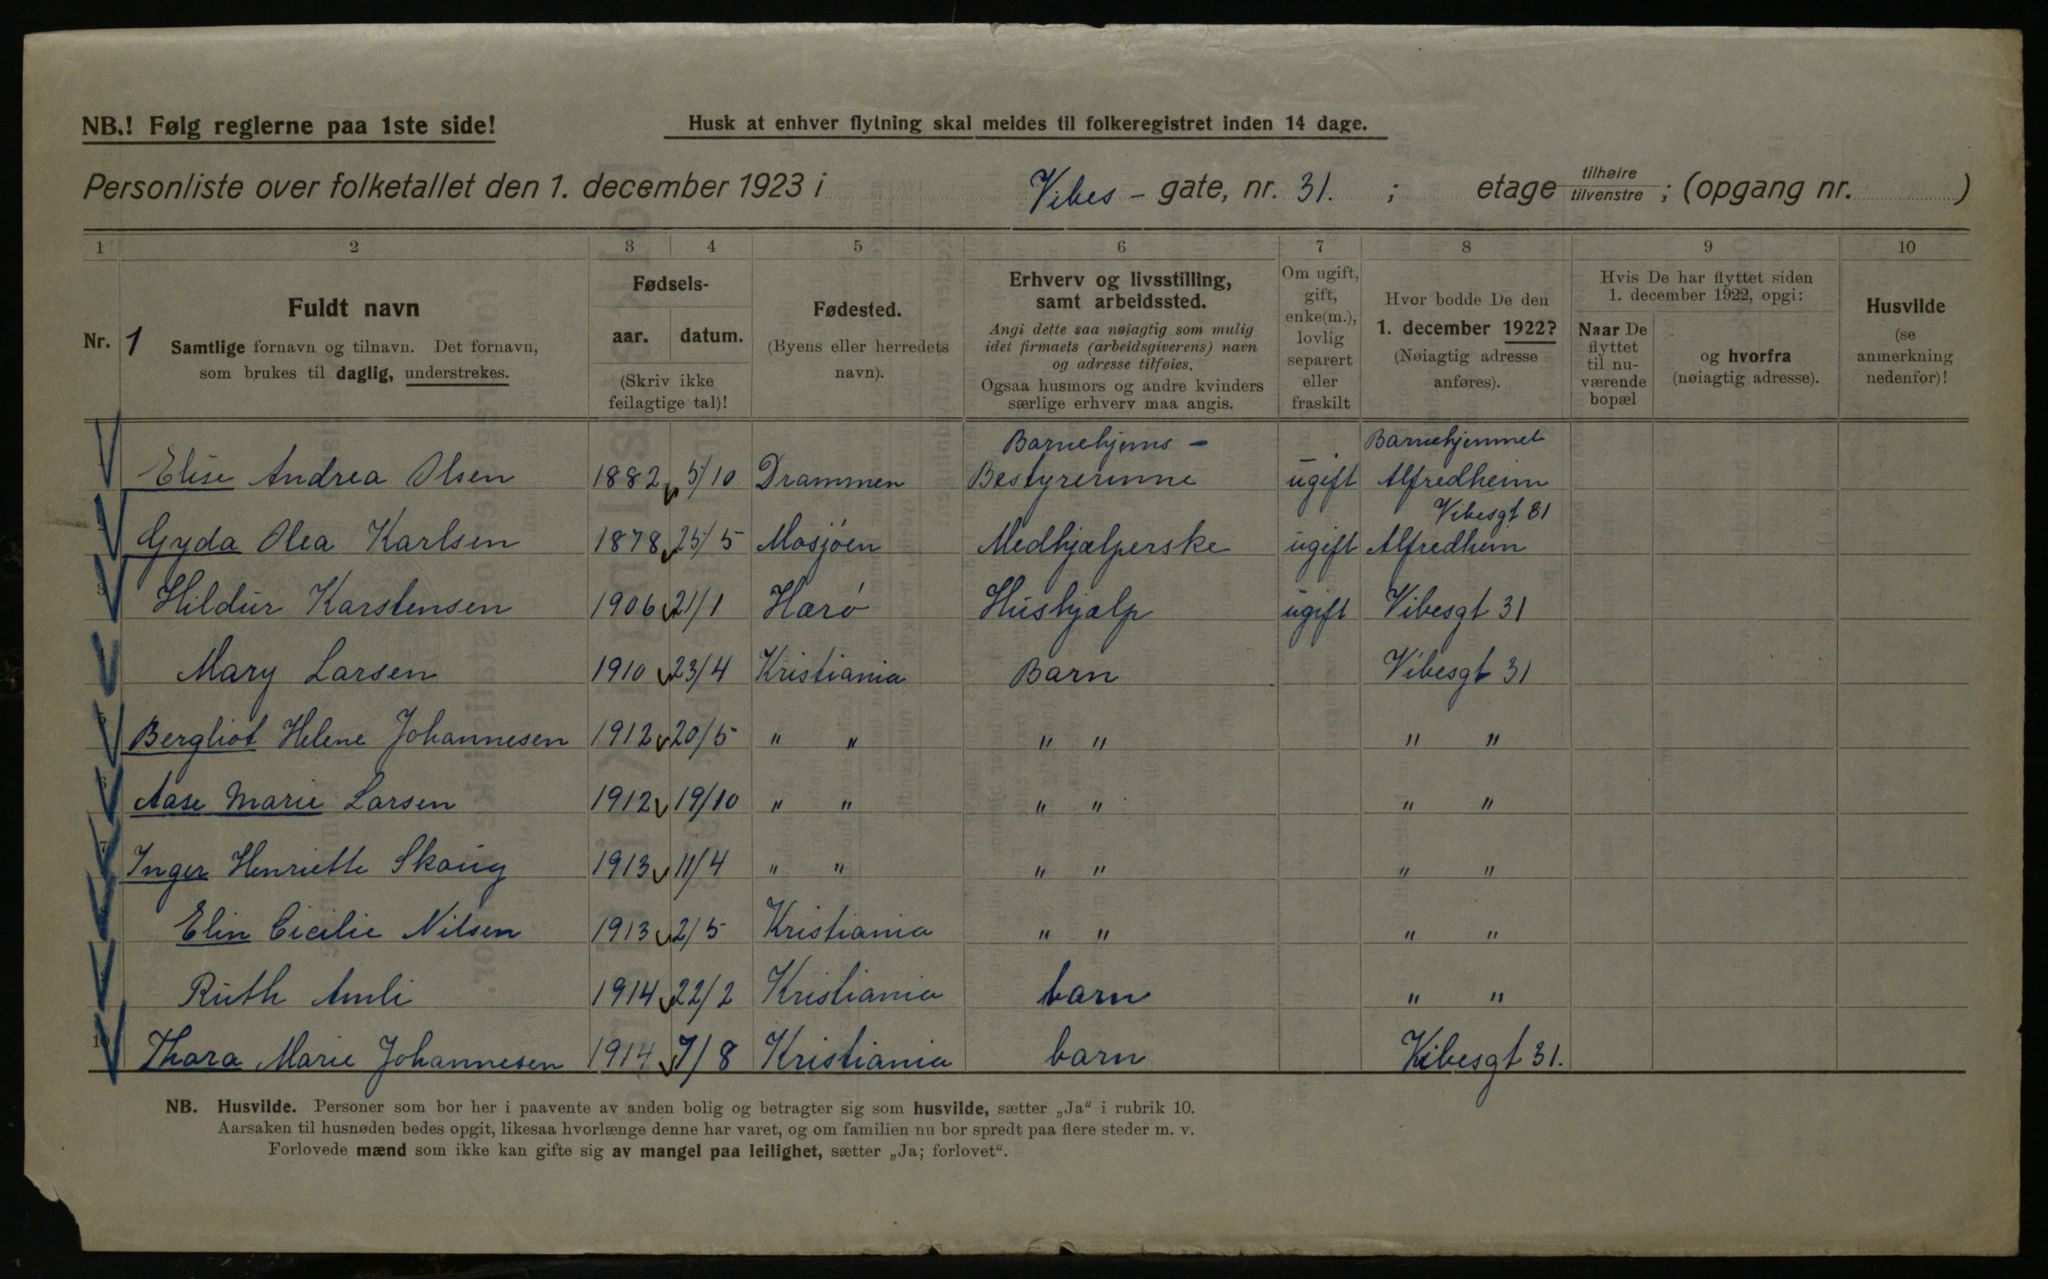 NB.! Følg reglerne paa 1ste side!
Husk at enhver flytning skal meldes til folkeregistret inden 14 dage.
Personliste over folketallet den 1. december 1923 i Vibes - gate, nr. 31. ; etage tilhøire tilvenstre ; (opgang nr. )
1 2 3 4 5 6 7 8 9 10
Nr. 1
Fuldt navn
Samtlige fornavn og tilnavn. Det fornavn,
som brukes til daglig, understrekes.
Fødsels-
aar. datum.
(Skriv ikke
feilagtige tal)!
Fødested.
(Byens eller herredets
navn).
Erhverv og livsstilling,
samt arbeidssted.
Angi dette saa nøiagtig som mulig
idet firmaets (arbeidsgiverens) navn
og adresse tilføies.
Ogsaa husmors og andre kvinders
særlige erhverv maa angis.
Om ugift,
gift,
enke(m.),
lovlig
separert
eller
fraskilt
Hvor bodde De den
1. december 1922?
(Nøiagtig adresse
anføres).
Hvis De har flyttet siden
1. december 1922, opgi:
Naar De
flyttet
til nu-
værende
bopæl
og hvorfra
(nøiagtig adresse).
Husvilde
(se
anmerkning
nedenfor)!
Barnehjems - Barnehjemmet
Elise Andrea Olsen 1882 5/10 Drammen Bestyrerinne ugift Alfredheim
Vibesgt 31
Gyda Olea Karlsen 1878 25/5 Mosjøen Medhjælperske ugift Alfredheim
3 Hildur Karstensen 1906 21/1 Hærø Hushjælp ugift Vibesgt 31
Mary Larsen 1910 23/4 Kristiania Barn Vibesgt 31
5 Bergliot Helene Johannesen 1912 20/5 " " " " " "
6 Aase Marie Larsen 1912 19/10 " " " " " "
7 Inger Henriette Skaug 1913 11/4 " " " " " "
Elin Cicilie Nilsen 1913 2/5 Kristiania " " " "
Ruth Amli 1914 22/2 Kristiania barn " "
10 Thora Marie Johannesen 1914 7/8 Kristiania barn Vibesgt 31.
NB. Husvilde. Personer som bor her i paavente av anden bolig og betragter sig som husvilde, sætter „Ja“ i rubrik 10.
Aarsaken til husnøden bedes opgit, likesaa hvorlænge denne har varet, og om familien nu bor spredt paa flere steder m. v.
Forlovede mænd som ikke kan gifte sig av mangel paa leilighet, sætter „Ja; forlovet“.